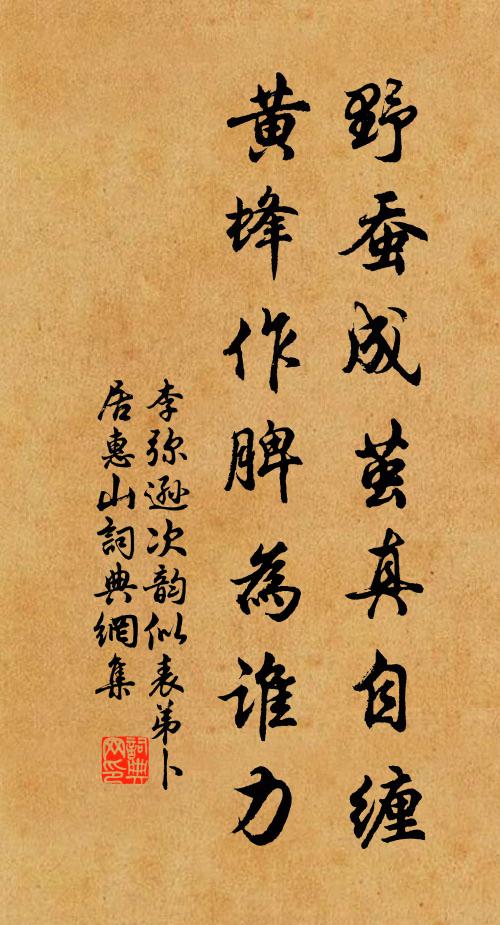 野蚕成茧真自缠
黄蜂作脾為谁力
李弥逊次韵似表弟卜
居惠山詞典網集
詞典
网印